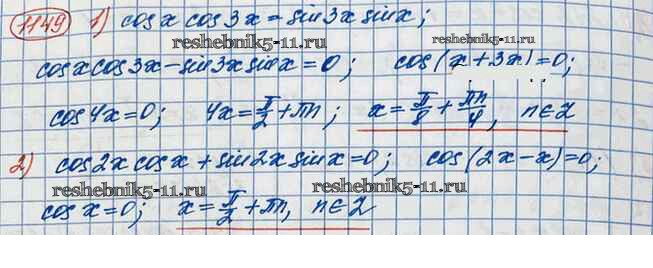 1149 1) cos x cos 3x = sin 3x sin x;
reshebnik5-11.ru
cos x cos 3x − sin 3x sin x = 0; cos(x + 3x) = 0;
reshebnik5-11.ru
cos 4x = 0; 4x = π/2 + πn; x = π/8 + πn/4, n ∈ Z
2) cos 2x cos x + sin 2x sin x = 0; cos(2x − x) = 0;
reshebnik5-11.ru reshebnik5-11.ru
cos x = 0; x = π/2 + πn, n ∈ Z